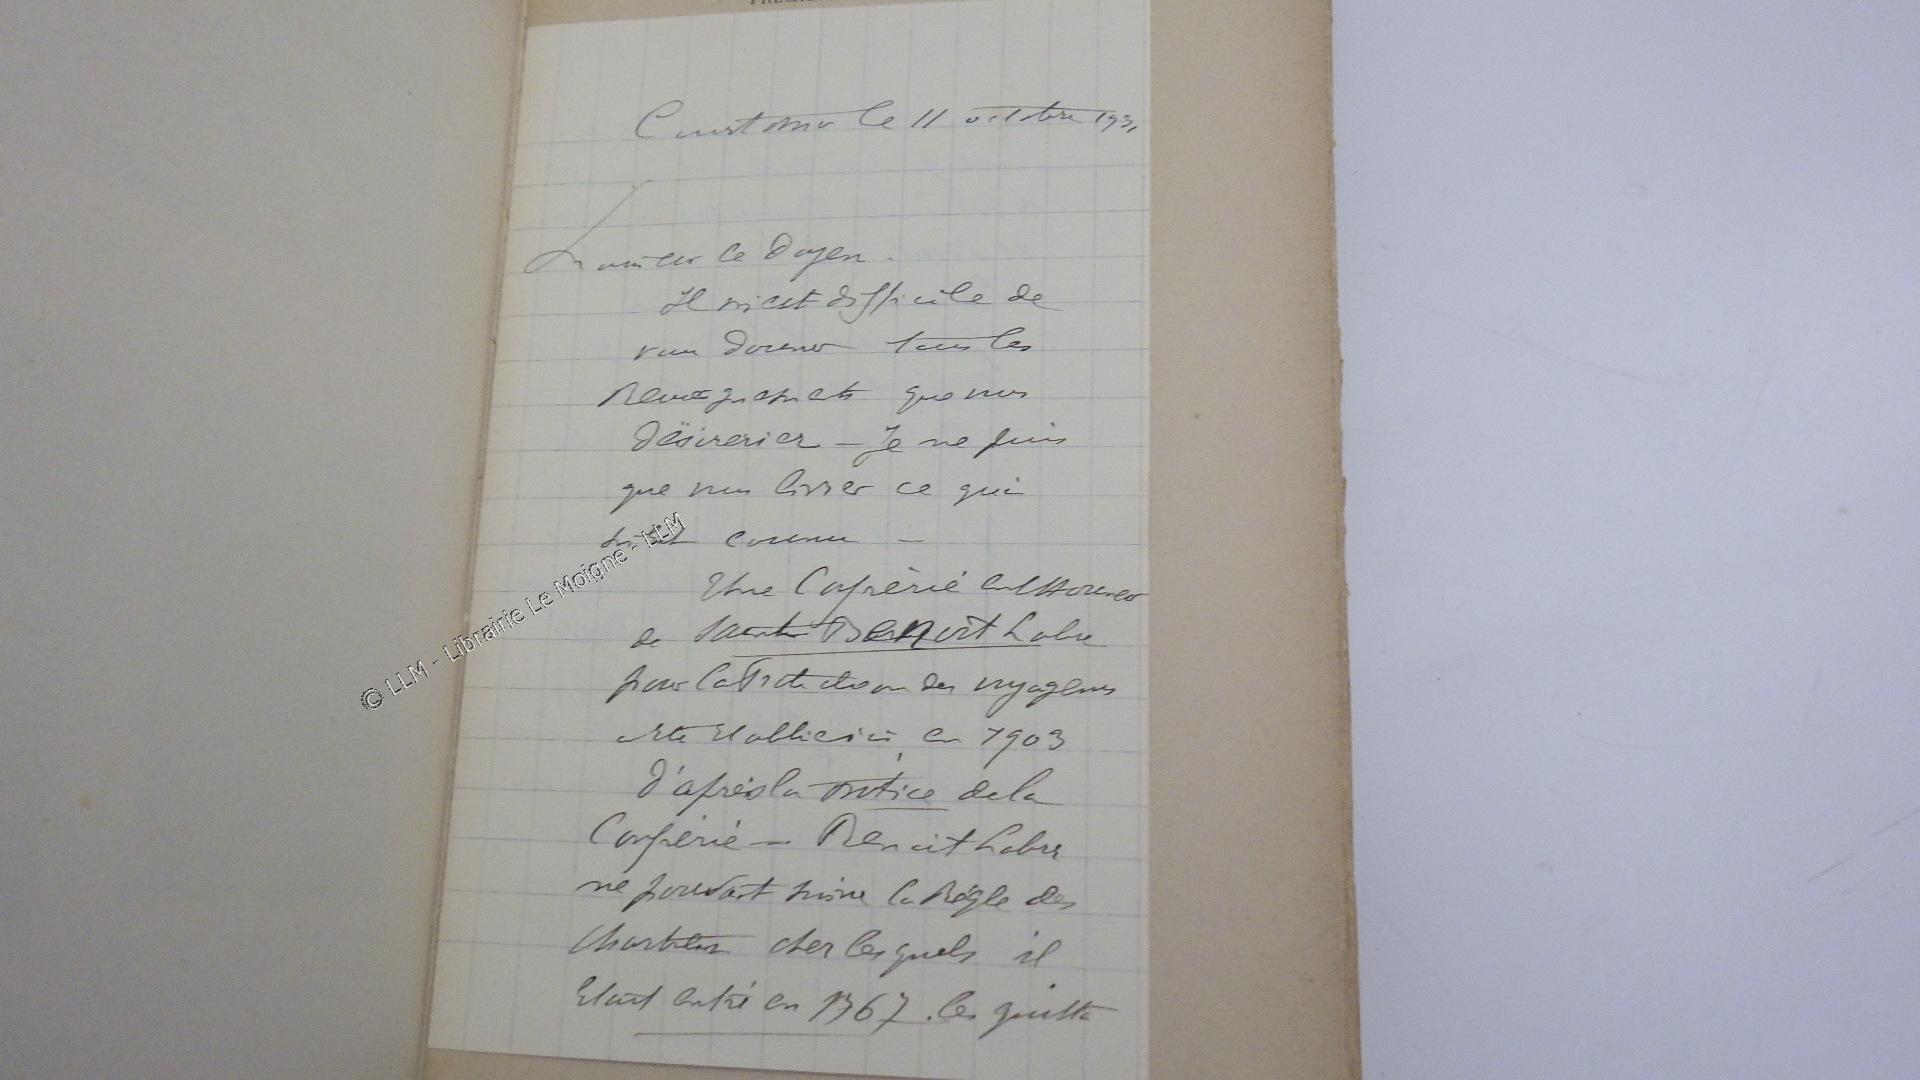 le 11 octobre 1931
Monsieur le Doyen.
Il m'est difficile de
vous donner tous les
Renseignements que vous
désireriez - Je ne puis
que vous livrer ce qui
m'est connu -
Une Confrérie en l'Honneur
de Saint Benoit Labre
pour la Protection des voyageurs
Etablie ici en 1903
D'après la notice de la
Confrérie - Benoit Labre
ne pouvant suivre la Règle des
Chartreux chez lesquels il
Etait entré en 1767. les quitta
© LLM - Librairie Le Moigne - LLM